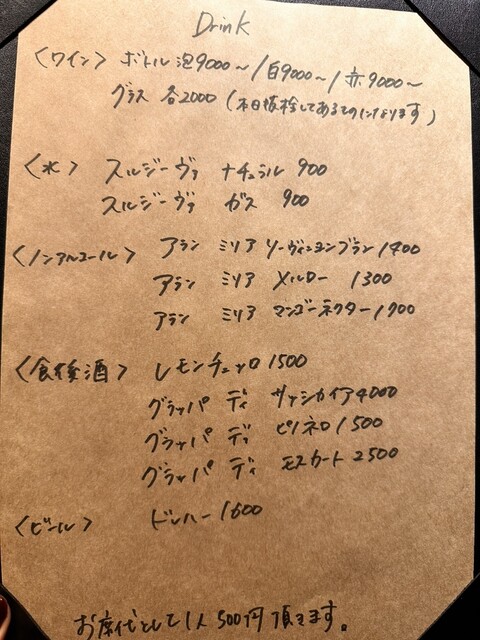 Drink
〈ワイン〉 ボトル 泡9000〜 / 白9000〜 / 赤9000〜
グラス 各2000 (本日抜栓してあるものになります)
〈水〉 スルジーヴァ ナチュラル 900
スルジーヴァ ガス 900
〈ノンアルコール〉 アラン ミリア ソーヴィニヨンブラン 1400
アラン ミリア メルロー 1300
アラン ミリア マンゴーネクター 1700
〈食後酒〉 レモンチェッロ 1500
グラッパ ディ サッシカイア 4000
グラッパ ディ ピノネロ 1500
グラッパ ディ モスカート 2500
〈ビール〉 ドレハー 1600
お席代として1人500円頂きます。